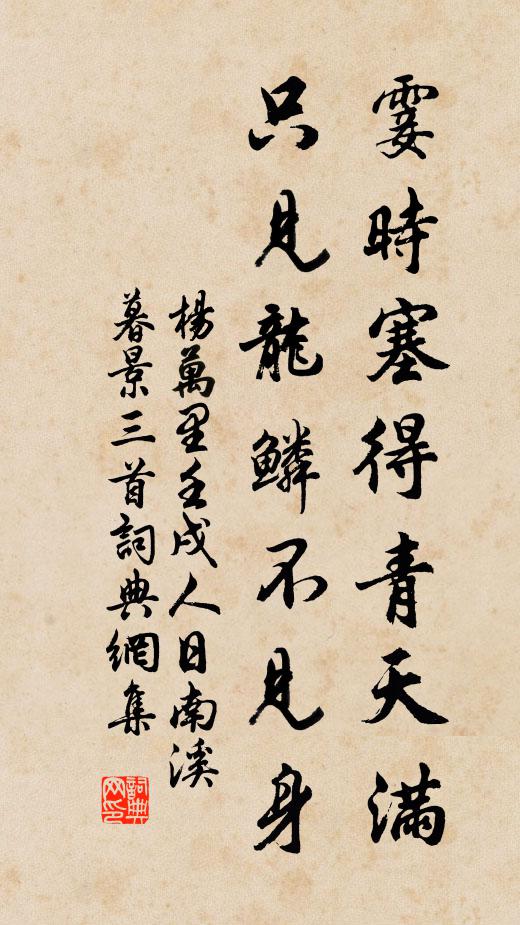 霎時塞得青天滿
只見龍鱗不見身
楊萬里壬戌人日南溪
暮景三首詞典網集
詞典
网印